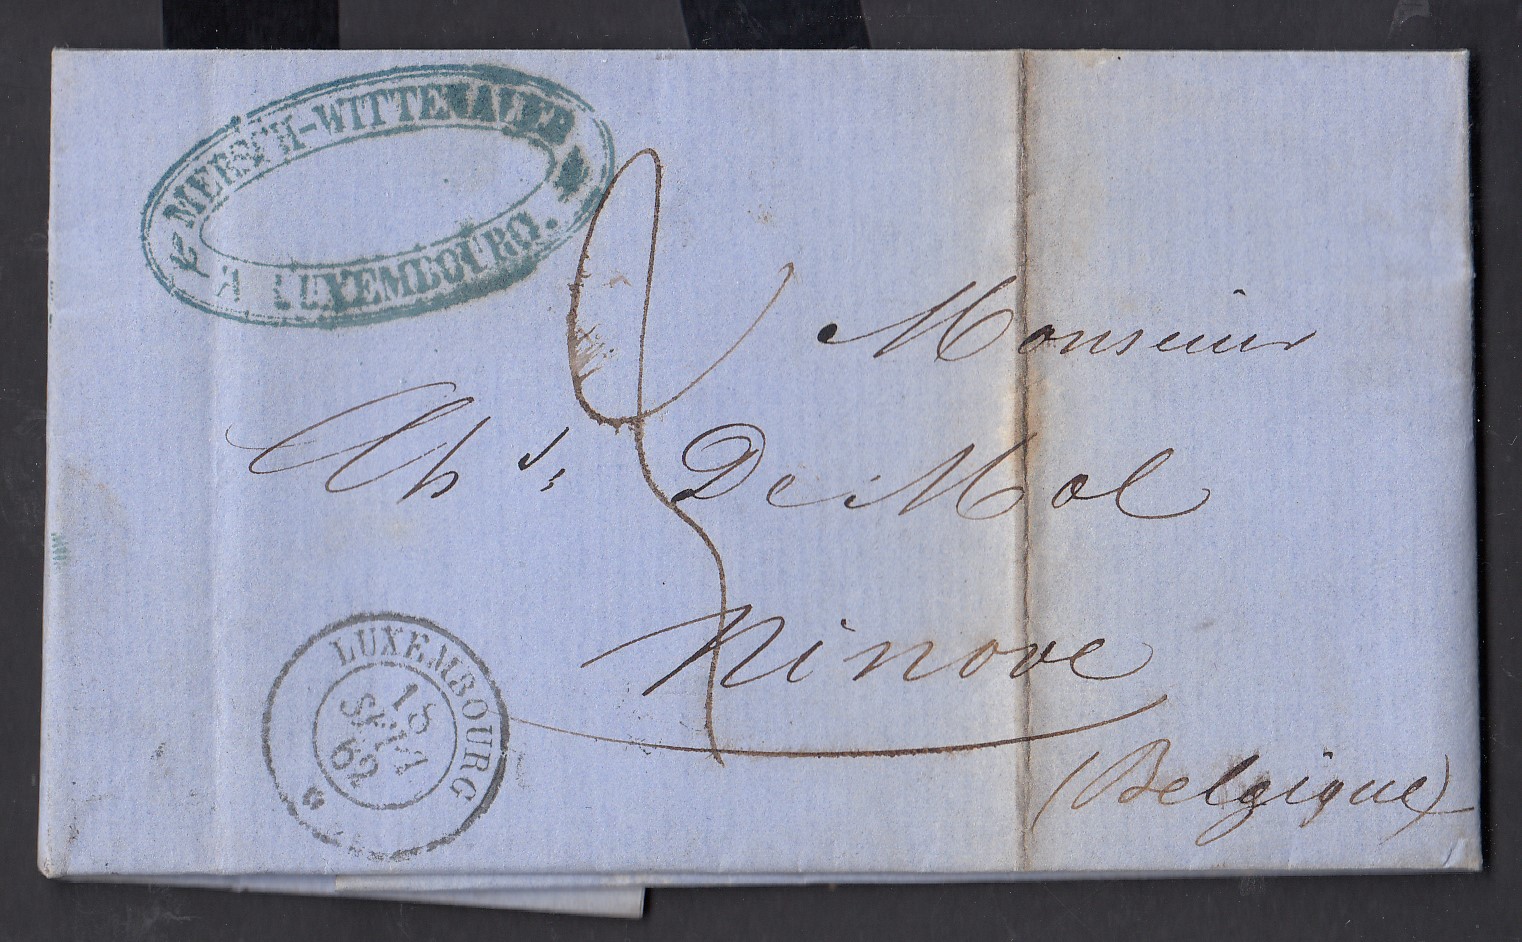 MERSCH-WITTENAUER
A LUXEMBOURG.
Monsieur
Chs De Mol
Ninove
(Belgique)
LUXEMBOURG
18
SEPT
62